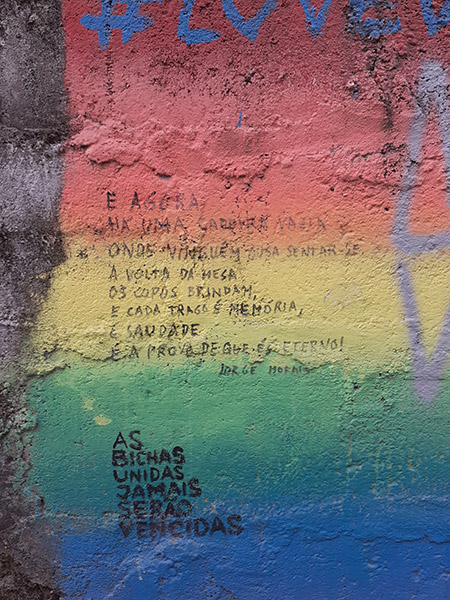 #LOVE
E AGORA
HÁ UMA CADEIRA VAZIA
ONDE NINGUÉM OUSA SENTAR-SE
À VOLTA DA MESA
OS COPOS BRINDAM,
E CADA TRAGO É MEMÓRIA,
E SAUDADE
É A PROVA DE QUE ÉS ETERNO!
JORGE MORAIS
AS
BICHAS
UNIDAS
JAMAIS
SERÃO
VENCIDAS